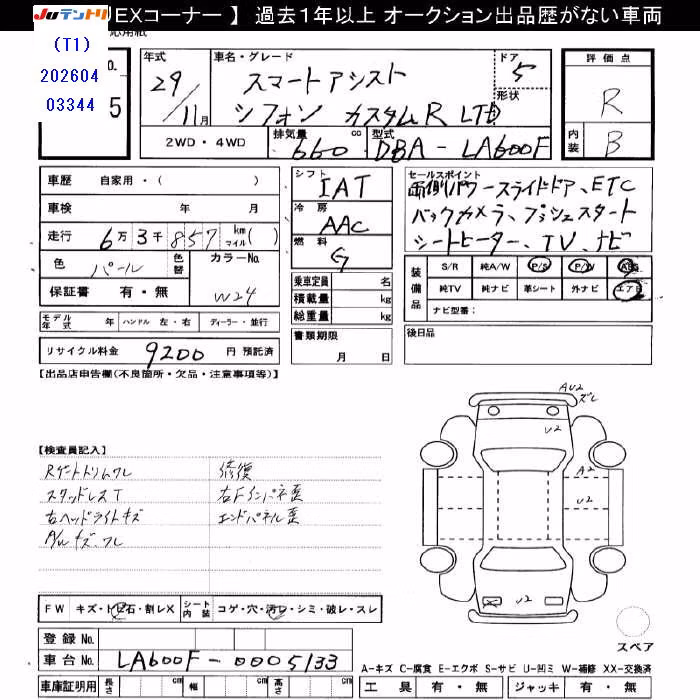 JUテントリ EXコーナー 】 過去1年以上 オークション出品歴がない車両
(T1)
202604
03344
No.
5
年式 29/11月
車名・グレード スマートアシスト
シフォン カスタムR LTD
ドア 5
形状
評価点 R
内装 B
2WD・4WD 排気量 660 cc 型式 DBA-LA600F
車歴 自家用・( )
車検 年 月
走行 6万3千857 km マイル( )
色 パール 色替 カラーNo. W24
保証書 有・無
モデル年式 年 ハンドル 左・右 ディーラー・並行
リサイクル料金 9200 円 預託済
シフト IAT
冷房 AAC
燃料 G
乗車定員 名
積載量 kg
総重量 kg
書類期限
月 日
セールスポイント
両側パワースライドドア、ETC
バックカメラ、プッシュスタート
シートヒーター、TV、ナビ
装備品 S/R 純A/W P/S P/W ABS
純TV 純ナビ 革シート 外ナビ エアB
ナビ型番:
後日品
【出品店申告欄(不良箇所・欠品・注意事項等)】
【検査員記入】
Rゲートトリムワレ 修復
スタッドレスT 右Fインパネ歪
右ヘッドライトキズ エンドパネル歪
A/Wキズ、ワレ
AU2
ズレ
U2
A2
U2
U2
FW キズ・ト石・割レX シート内装 コゲ・穴・汚レ・シミ・破レ・スレ
登録No.
車台No. LA600F-0005133
車庫証明用 長さ cm 幅 cm 高さ cm
スペア
A-キズ C-腐食 E-エクボ S-サビ U-凹ミ W-補修 XX-交換済
工具 有・無 ジャッキ 有・無